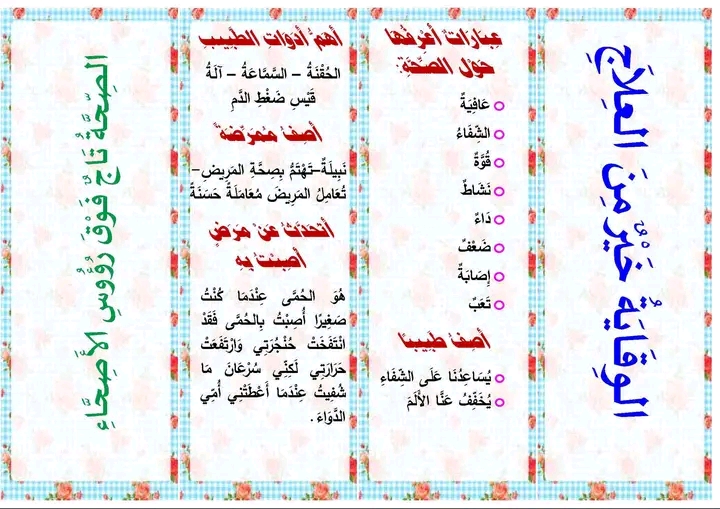 الوِقَايَةُ خَيْرٌ مِنَ العِلَاجِ
عِبَارَاتٌ أَعْرِفُهَا
حَوْلَ الصِّحَّةِ:
عَافِيَةٌ
الشِّفَاءُ
قُوَّةٌ
نَشَاطٌ
دَاءٌ
ضَعْفٌ
إِصَابَةٌ
تَعَبٌ
أَصِفُ طَبِيبًا
يُسَاعِدُنَا عَلَى الشِّفَاءِ
يُخَفِّفُ عَنَّا الأَلَمَ
أَهَمُّ أَدَوَاتِ الطَّبِيبِ
الحُقْنَةُ – السَّمَّاعَةُ – آلَةُ
قَيْسِ ضَغْطِ الدَّمِ
أَصِفُ مُمَرِّضَةً
نَبِيلَةٌ–تَهْتَمُّ بِصِحَّةِ المَرِيضِ–
تُعَامِلُ المَرِيضَ مُعَامَلَةً حَسَنَةً
أَتَحَدَّثُ عَنْ مَرَضٍ
أُصِبْتُ بِهِ
هُوَ الحُمَّى عِنْدَمَا كُنْتُ
صَغِيرًا أُصِبْتُ بِالحُمَّى فَقَدْ
انْتَفَخَتْ حُنْجُرَتِي وَارْتَفَعَتْ
حَرَارَتِي لَكِنِّي سُرْعَانَ مَا
شُفِيتُ عِنْدَمَا أَعْطَتْنِي أُمِّي
الدَّوَاءَ.
الصِّحَّةُ تَاجٌ فَوْقَ رُؤُوسِ الأَصِحَّاءِ